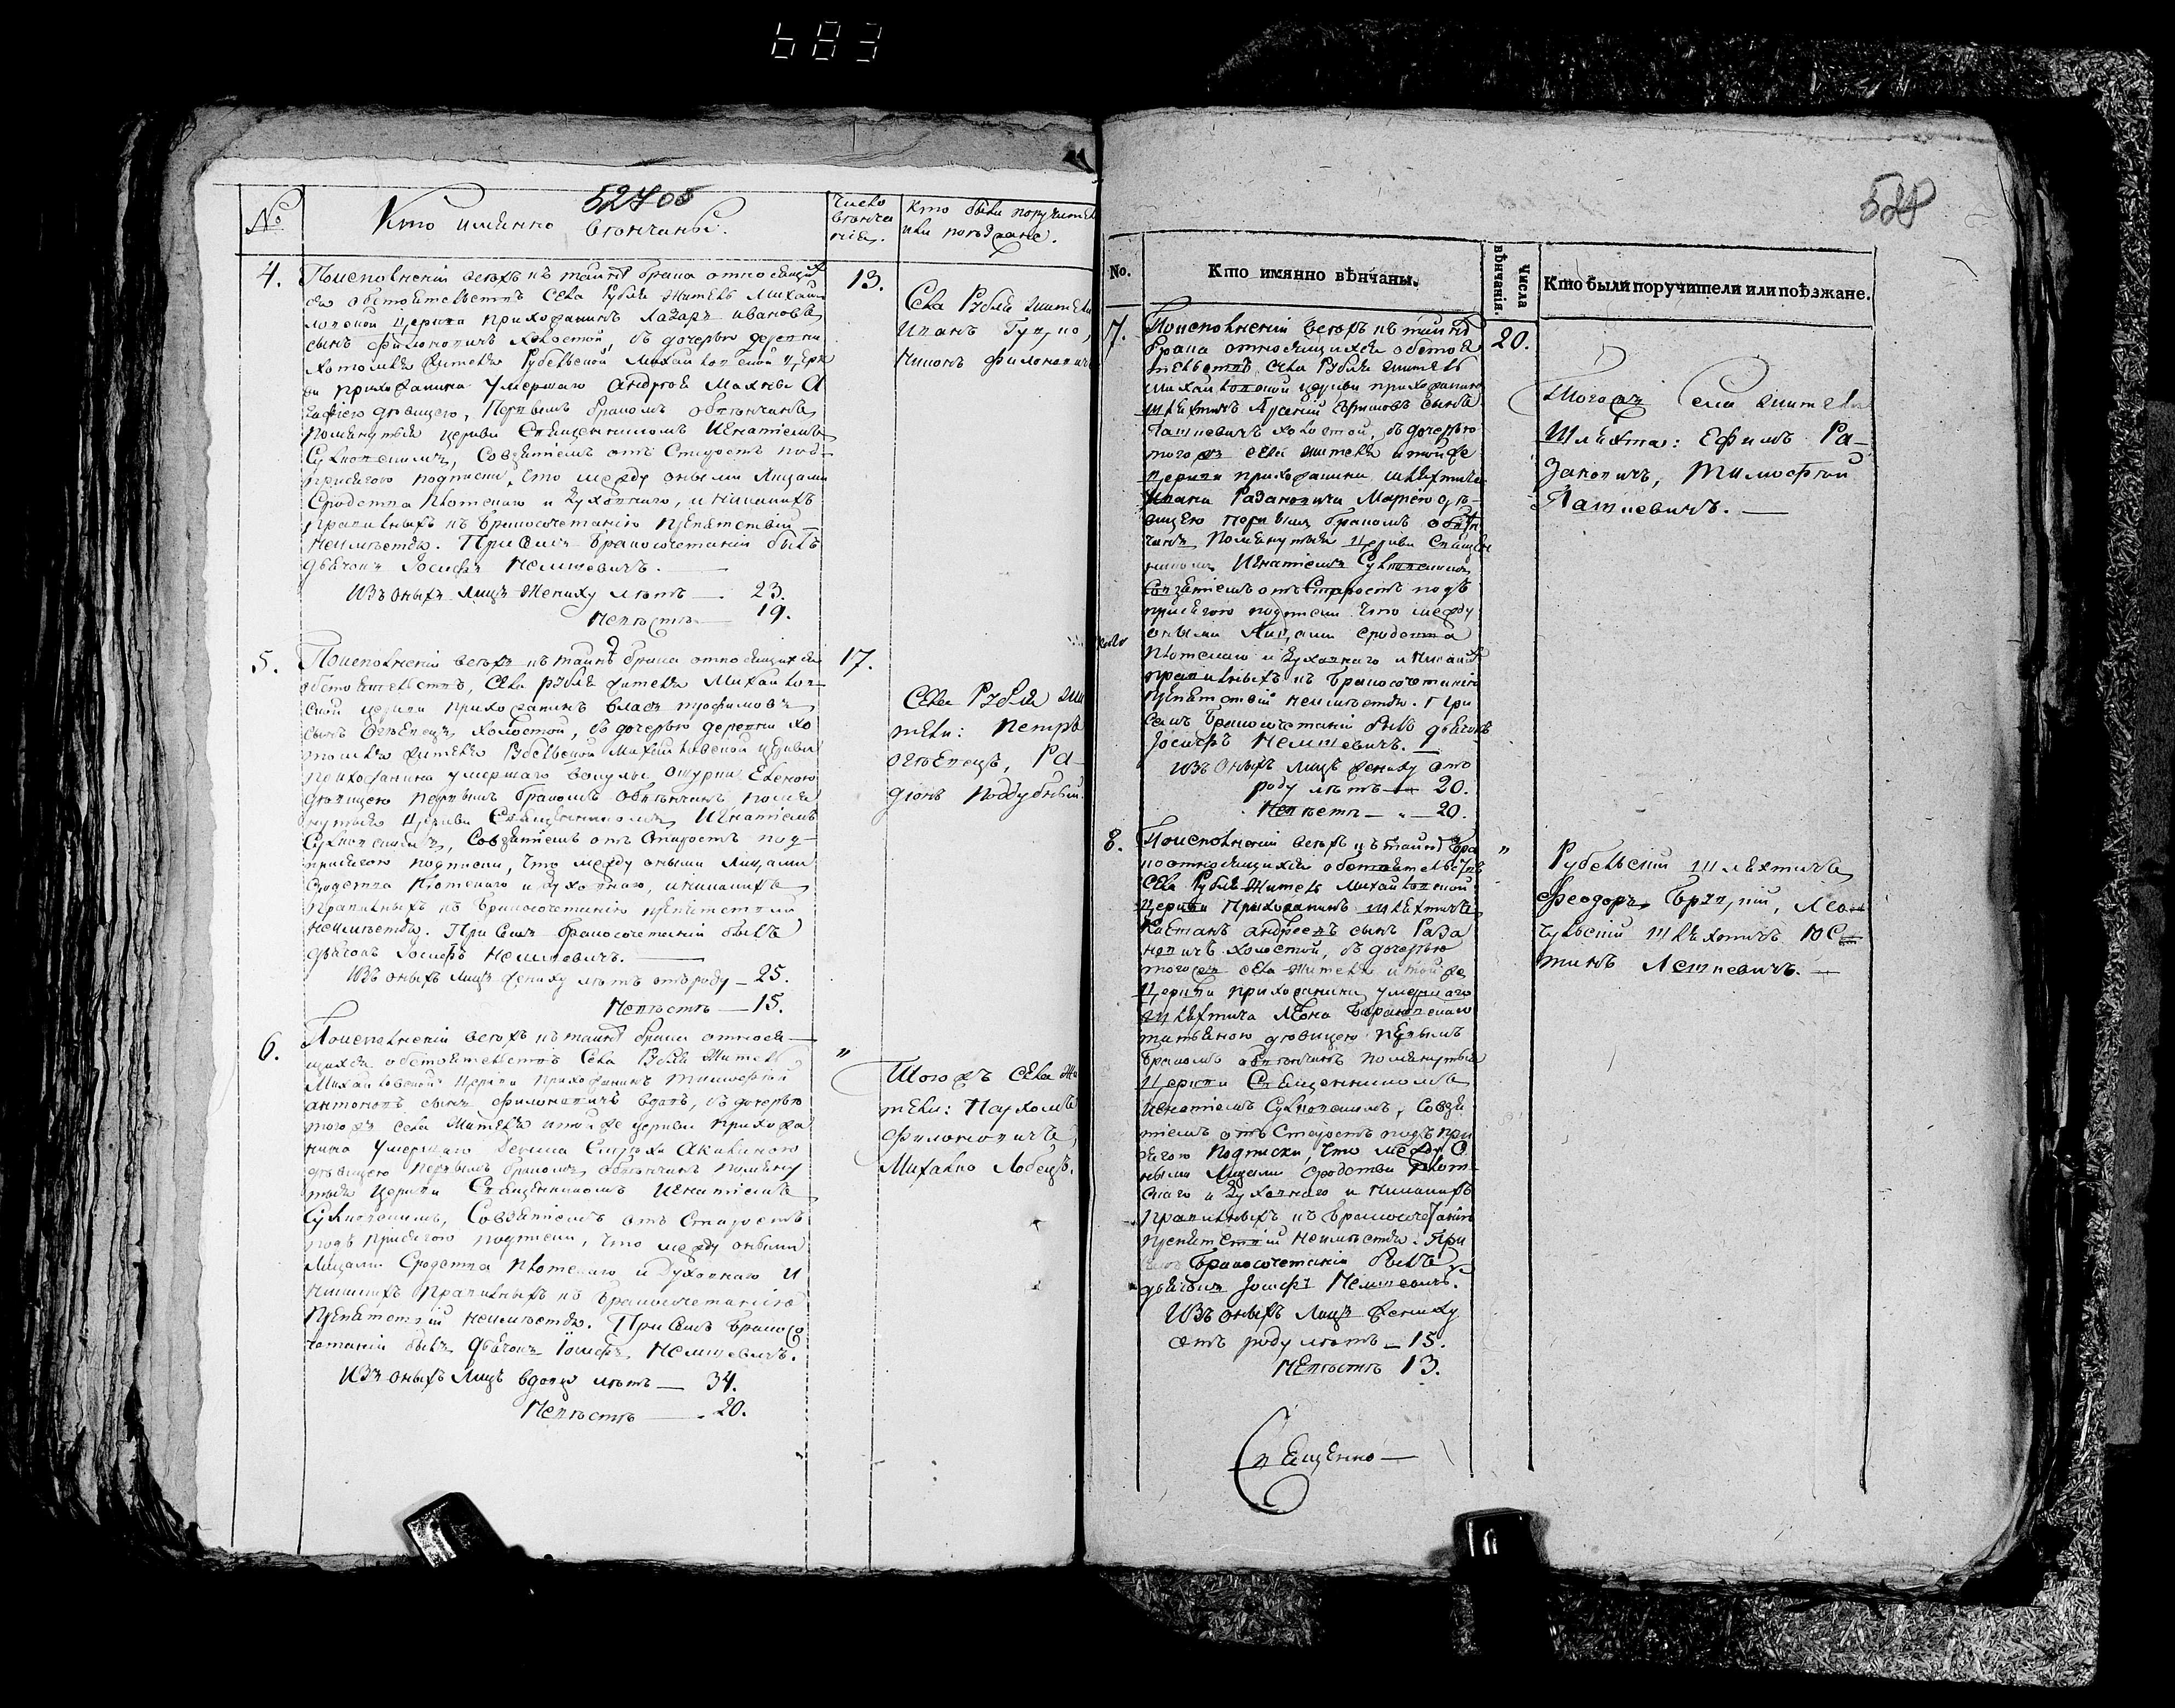 683
527 об
№
Кто имянно вѣнчаны.
Число вѣнчанія.
Кто были поручители или поѣзжане.
4.
По исполненіи всѣхъ къ тайнѣ брака относящих
ся обстоятельствъ Села Рубля житель Михай
ловской церкви прихожанинъ Лазарь Ивановъ
сынъ Филоновичъ холостой, съ дочерью деревни
Хотомля жителя Рубельской Михайловской церк
ви прихожанина умершаго Андрея Махны А
гафіею дѣвицею, первымъ бракомъ обвѣнчанъ
помянутыя церкви Священникомъ Игнатіемъ
Сулковскимъ, Совзятіемъ отъ Старостъ под
присягою подписки, что между оными Лицами
Сродства плотскаго и духовнаго, и никакихъ
правильныхъ къ бракосочетанію препятствій
неимѣется. При семъ бракосочетаніи былъ
дьячокъ Іосифъ Немшевичъ.
Изъ оныхъ лицъ жениху лѣтъ — 23.
Невѣстѣ — 19.
13.
Села Рубля жители
Никонъ Филонович
5.
По исполненіи всѣхъ къ тайнѣ брака относящихся
обстоятельствъ, села Рубля жителя Михайлов
ской церкви прихожанинъ Власъ Трофимовъ
сынъ Огіевецъ холостой, съ дочерью деревни Хо
томля жителя Рубельской Михайловской церкви
прихожанина умершаго Еленою
дѣвицею первымъ бракомъ обвѣнчанъ помя
нутыя церкви Священникомъ Игнатіемъ
Сулковскимъ, Совзятіемъ отъ Старостъ под
присягою подписки, что между оными лицами
Сродства плотскаго и духовнаго, и никакихъ
правильныхъ къ бракосочетанію препятствій
неимѣется. При семъ бракосочетаніи былъ
дьячокъ Іосифъ Немшевичъ.
Изъ оныхъ лицъ жениху лѣтъ отъ роду — 25.
Невѣстѣ — 15.
17.
Села Рубля жи
тели: Петръ
Огіевецъ, Ра
діонъ Поддубный.
6.
По исполненіи всѣхъ къ тайнѣ брака относя
щихся обстоятельствъ Села Рубля житель
Михайловской церкви прихожанинъ Тимофей
Антоновъ сынъ Филоновичъ вдовъ, съ дочерью
тогожъ села жителя и тойже церкви прихожа
нина умершаго Акилиною
дѣвицею первымъ бракомъ обвѣнчанъ помяну
тыя церкви Священникомъ Игнатіемъ
Сулковскимъ, Совзятіемъ отъ Старостъ
подъ присягою подписки, что между оными
Лицами Сродства плотскаго и духовнаго и
никакихъ правильныхъ къ бракосочетанію
препятствій неимѣется. При семъ бракосо
четаніи былъ дьячокъ Іосифъ Немшевичъ.
Изъ оныхъ лицъ вдовцу лѣтъ — 34.
Невѣстѣ — 20.
"
Тогожъ села жи
тели: Пархомъ
Филоновичъ,
Михайло Лобецъ.
528
No.
Кто имянно вѣнчаны.
Числа вѣнчанія.
Кто были поручители или поѣзжане.
7.
По исполненіи всѣхъ къ тайнѣ
брака относящихся обстоя
тельствъ села Рубля житель
Михайловской церкви прихожанинъ
шляхтичъ сынъ
Пашкевичъ холостой, съ дочерью
тогожъ села жителя и тойже
церкви прихожанина шляхтича
Ивана Разановича Маріею дѣ
вицею первымъ бракомъ обвѣн
чанъ помянутыя церкви Священ
никомъ Игнатіемъ Сулковскимъ
Совзятіемъ отъ Старостъ подъ
присягою подписки что между
оными лицами сродства
плотскаго и духовнаго и никаких
правильныхъ къ бракосочетанію
препятствій неимѣется. При
семъ бракосочетаніи былъ дьячокъ
Іосифъ Немшевичъ.
Изъ оныхъ лицъ жениху отъ
роду лѣтъ — 20.
Невѣстѣ — 20.
20.
Тогожъ села жители
Шляхта: Ефимъ Ра-
зановичъ, Тимофей
Пашкевичъ. —
8.
По исполненіи всѣхъ къ тайнѣ бра
ка относящихся обстоятельствъ
Села Рубля житель Михайловской
церкви прихожанинъ шляхтичъ
Касьянъ Андреевъ сынъ Раза
новичъ холостой, съ дочерью
тогожъ села жителя и тойже
церкви прихожанина умершаго
шляхтича Леона
Татьяною дѣвицею первымъ
бракомъ обвѣнчанъ помянутыя
церкви Священникомъ
Игнатіемъ Сулковскимъ, Совзя
тіемъ отъ Старостъ подъ при
сягою подписки, что между о
ными лицами сродства плот
скаго и духовнаго и никакихъ
правильныхъ къ бракосочетанію
препятствій неимѣется. При
семъ бракосочетаніи былъ
дьячокъ Іосифъ Немшевичъ.
Изъ оныхъ лицъ жениху
отъ роду лѣтъ — 15.
Невѣстѣ 13.
"
Рубельскій шляхтичъ
Феодоръ
шляхтичъ Юс
тинъ Лешкевичъ. —
Священно —